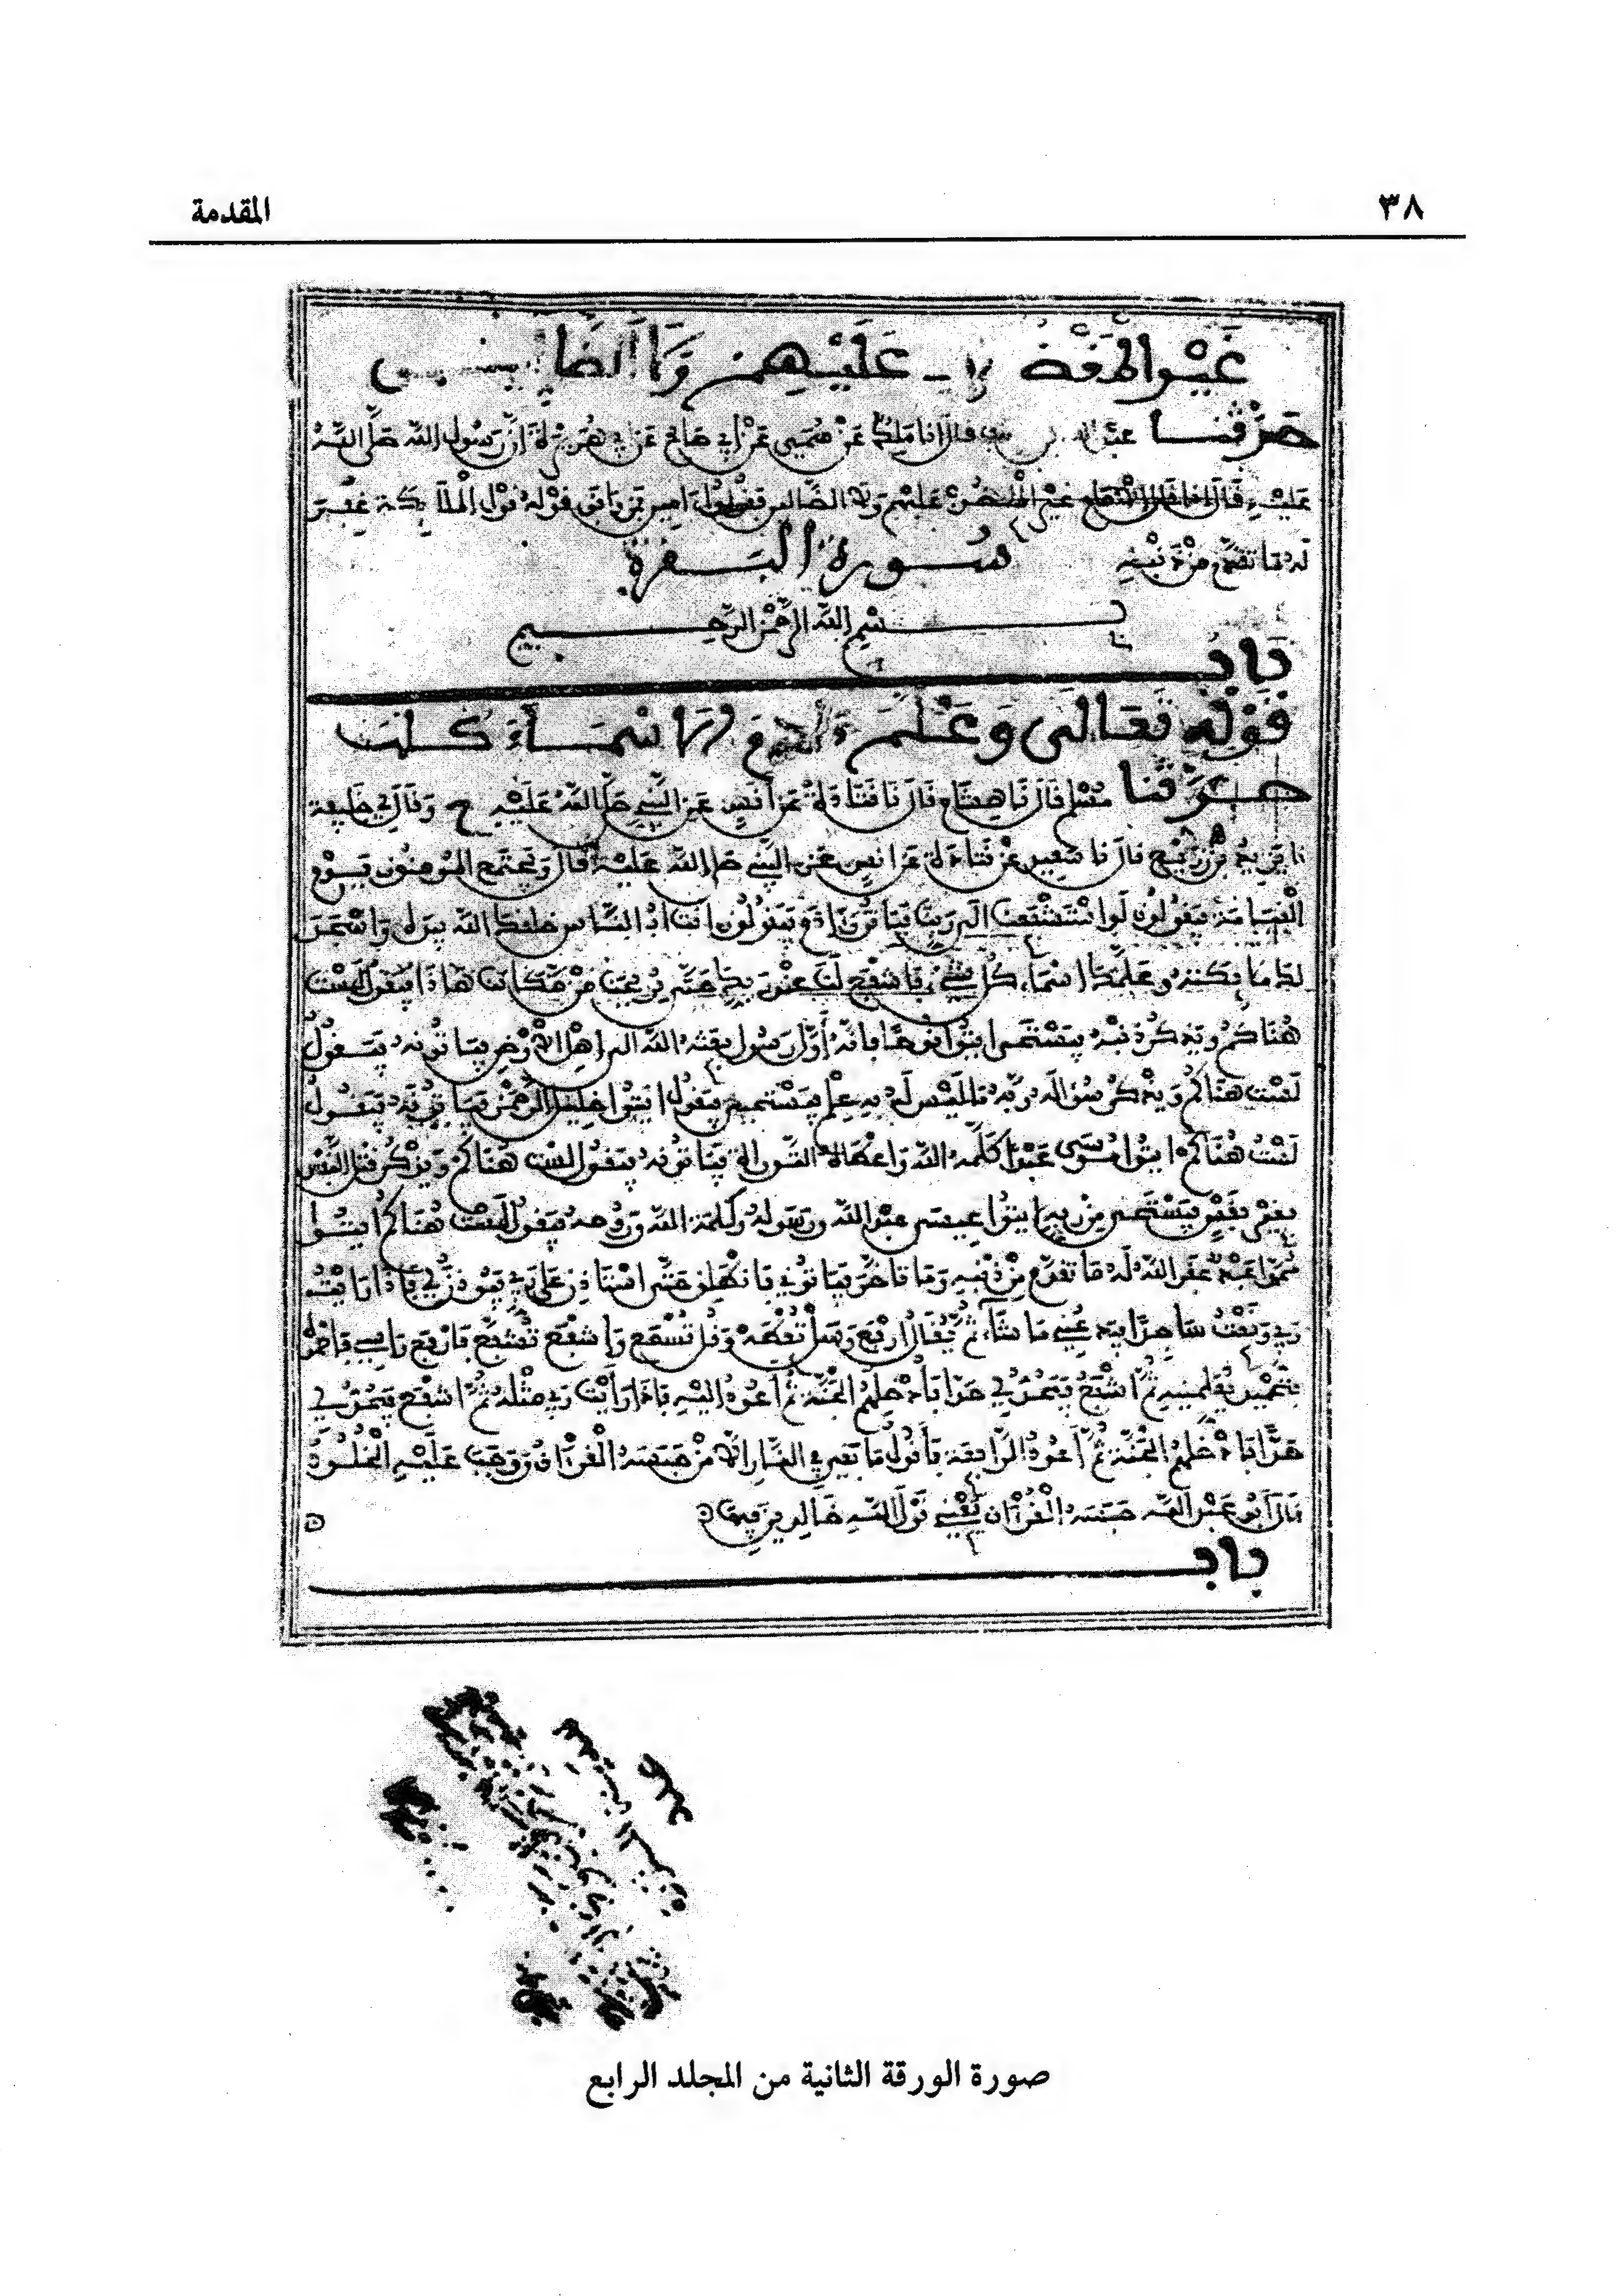 ٣٨ المقدمة
غَيْرِ الْمَغْضُوبِ عَلَيْهِمْ وَلَا الضَّالِّينَ
حَدَّثَنَا عبد الله بن يوسف قال انا مَلِكٌ عَنْ سُمَيٍّ عَنْ أَبِي صَالِحٍ عَنْ أَبِي هُرَيْرَةَ أَنَّ رَسُولَ اللَّهِ صَلَّى اللَّهُ
عَلَيْهِ قَالَ إذا قال الإمام غَيْرِ المغضوب عَلَيْهِم وَلَا الضَّالين فَقُولُوا آمين فمن وافق قَوْلُهُ قَوْلَ الْمَلَائِكَةِ غُفِرَ
لَهُ مَا تَقَدَّمَ مِنْ ذَنْبِهِ سُورَةُ الْبَقَرَةِ
بِسْمِ اللَّهِ الرَّحْمَنِ الرَّحِيمِ
بَابُ
قَوْلِهِ تَعَالَى وَعَلَّمَ ءَادَمَ الْأَسْمَاءَ كُلَّهَا
حَدَّثَنَا مُسْلِم قَالَ نَا هِشَام قَالَ نَا قَتَادَةُ عَنْ أَنَسٍ عَنِ النَّبِيِّ صَلَّى اللَّهُ عَلَيْهِ ح وَقَالَ لِي خَلِيفَة
نَا يَزِيدُ بْنُ زُرَيْعٍ قَالَ نَا سَعِيد عَنْ قَتَادَةَ عَنْ أَنَسٍ عَنِ النَّبِيِّ صَلَّى اللَّهُ عَلَيْهِ قَالَ وَيَجْتَمِعُ الْمُومِنُونَ يَوْمَ
الْقِيَامَةِ فَيَقُولُونَ لَوِ اسْتَشْفَعْنَا إِلَى رَبِّنَا فَيَاتُونَ ءَادَمَ فَيَقُولُونَ أَنْتَ أَبُو النَّاسِ خَلَقَكَ اللَّهُ بِيَدِهِ وَأَسْجَدَ
لَكَ مَلَائِكَتَهُ وَعَلَّمَكَ أَسْمَاءَ كُلِّ شَيْءٍ فَاشْفَعْ لَنَا عِنْدَ رَبِّكَ حَتَّى يُرِيحَنَا مِنْ مَكَانِنَا هَاذَا فَيَقُولُ لَسْتُ
هُنَاكُمْ وَيَذْكُرُ ذَنْبَهُ فَيَسْتَحْيِي ايتُوا نُوحًا فَإِنَّهُ أَوَّلُ رَسُولٍ بَعَثَهُ اللَّهُ إِلَى أَهْلِ الْأَرْضِ فَيَاتُونَهُ فَيَقُولُ
لَسْتُ هُنَاكُمْ وَيَذْكُرُ سُؤَالَهُ رَبَّهُ مَا لَيْسَ لَهُ بِهِ عِلْمٌ فَيَسْتَحْيِي فَيَقُولُ ايتُوا خَلِيلَ الرَّحْمَنِ فَيَاتُونَهُ فَيَقُولُ
لَسْتُ هُنَاكُمْ ايتُوا مُوسَى عَبْدًا كَلَّمَهُ اللَّهُ وَأَعْطَاهُ التَّوْرَاةَ فَيَاتُونَهُ فَيَقُولُ لَسْتُ هُنَاكُمْ وَيَذْكُرُ قَتْلَ النَّفْسِ
بِغَيْرِ نَفْسٍ فَيَسْتَحْيِي مِنْ رَبِّهِ ايتُوا عِيسَى عَبْدَ اللَّهِ وَرَسُولَهُ وَكَلِمَةَ اللَّهِ وَرُوحَهُ فَيَقُولُ لَسْتُ هُنَاكُمْ ايتُوا
مُحَمَّدًا عَبْدًا غَفَرَ اللَّهُ لَهُ مَا تَقَدَّمَ مِنْ ذَنْبِهِ وَمَا تَأَخَّرَ فَيَاتُونِي فَأَنْطَلِقُ حَتَّى أَسْتَاذِنَ عَلَى رَبِّي فَيُوذَنُ لِي فَإِذَا رَأَيْتُ
رَبِّي وَقَعْتُ سَاجِدًا فَيَدَعُنِي مَا شَاءَ ثُمَّ يُقَالُ ارْفَعْ وَسَلْ تُعْطَهْ وَقُلْ تُسْمَعْ وَاشْفَعْ تُشَفَّعْ فَأَرْفَعُ رَاسِي فَأَحْمَدُهُ
بِتَحْمِيدٍ يُعَلِّمُنِيهِ ثُمَّ أَشْفَعُ فَيَحُدُّ لِي حَدًّا فَأُدْخِلُهُمُ الْجَنَّةَ ثُمَّ أَعُودُ إِلَيْهِ فَإِذَا رَأَيْتُ رَبِّي مِثْلَهُ ثُمَّ أَشْفَعُ فَيَحُدُّ لِي
حَدًّا فَأُدْخِلُهُمُ الْجَنَّةَ ثُمَّ أَعُودُ الرَّابِعَةَ فَأَقُولُ مَا بَقِيَ فِي النَّارِ إِلَّا مَنْ حَبَسَهُ الْقُرْآنُ وَوَجَبَ عَلَيْهِ الْخُلُودُ
قَالَ أَبُو عَبْدِ اللَّهِ حَبَسَهُ الْقُرْآنُ يَعْنِي قَوْلَ اللَّهِ خَالِدِينَ فِيهَا
بَابُ
صورة الورقة الثانية من المجلد الرابع